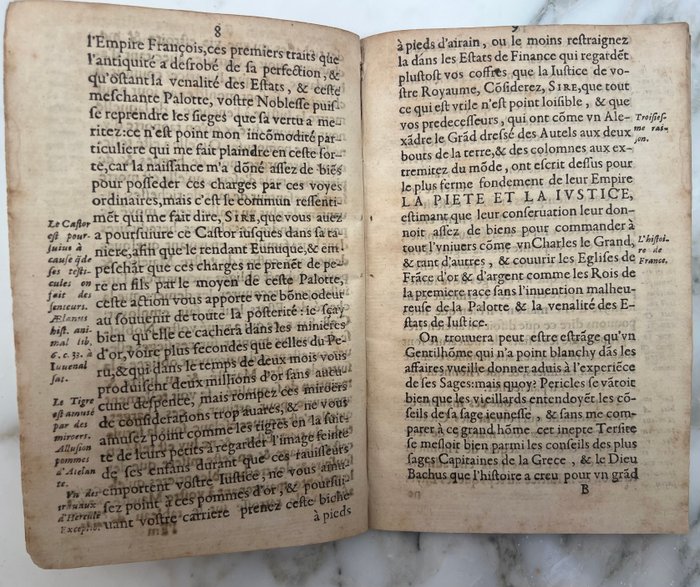 8
l'Empire François, ces premiers traits que
l'antiquité a desrobé de sa perfection, &
qu'ostant la venalité des Estats, & ceste
meschante Palotte, vostre Noblesse puis-
se reprendre les sieges que sa vertu a me-
ritez: ce n'est point mon incõmodité par-
ticuliere qui me fait plaindre en ceste sor-
te, car la naissance m'a dõné assez de biẽs
pour posseder ces charges par ces voyes
ordinaires, mais c'est le commun ressenti-
mẽt qui me fait dire, SIRE, que vous auez
a poursuiure ce Castor iusques dans sa ta-
niere, afin que le rendant Eunuque, & em-
peschãt que ces charges ne prenẽt de pe-
re en fils par le moyen de ceste Palotte,
ceste action vous apporte vne bõne odeur
au souuenir de toute la posterité: ie sçay
bien qu'elle ce cachera dans les minieres
d'or, voire plus secondes que celles du Pe-
ru, & qui dans le temps de deux mois vous
produisent deux millions d'or sans aucu-
cune despence, mais rompez ces miroërs
de considerations trop auares, & ne vous
amusez point comme les tigres en la suit-
te de leurs petits à regarder l'image feinte
de ses enfans durant que ces rauisseurs
emportent vostre Iustice, ne vous amu-
sez point à ces pommes d'or, & poursui-
uant vostre carriere prenez ceste biche
à pieds
Le Castor
est pour-
suiuie à
cause q̃ de
ses testi-
cules on
fait des
senteurs.
Ælianus
hist. ani-
mal lib.
6. c. 33.
Iuuenal
sat.
Le Tigre
est amusé
par des
miroers.
Allusion
pommes
d'Atelan-
te.
Vn des
trauaux
d'Hercule
9
à pieds d'airain, ou le moins restraignez
la dans les Estats de Finance qui regardẽt
plustost vos coffres que la Iustice de vo-
stre Royaume, Cõsiderez, SIRE, que tout
ce qui est vtile n'est point loisible, & que
vos predecesseurs, qui ont cõme vn Ale-
xãdre le Grãd dressé des Autels aux deux
bouts de la terre, & des colomnes aux ex-
tremitez du mõde, ont escrit dessus pour
le plus ferme fondement de leur Empire
LA PIETE ET LA IVSTICE,
estimant que leur conseruation leur don-
noit assez de biens pour commander à
tout l'vniuers cõme vn Charles le Grand,
& tant d'autres, & couurir les Eglises de
Frãce d'or & d'argent comme les Rois de
la premiere race sans l'inuention malheu-
reuse de la Palotte & la venalité des E-
stats de Iustice.
On trouuera peut estre estrãge qu'vn
Gentilhõme qui n'a point blanchy dãs les
affaires vuielle donner aduis à l'experiẽce
de ses Sages: mais quoy? Pericles se vãtoit
bien que les vieillards entendoyẽt les cõ-
seils de sa sage ieunesse, & sans me com-
parer à ce grand hõme cet inepte Tersite
se mesloit bien parmi les conseils des plus
sages Capitaines de la Grece, & le Dieu
Bachus que l'histoire a creu pour vn grãd
B
Troisies-
me rai-
son.
L'histoi-
re de
France.